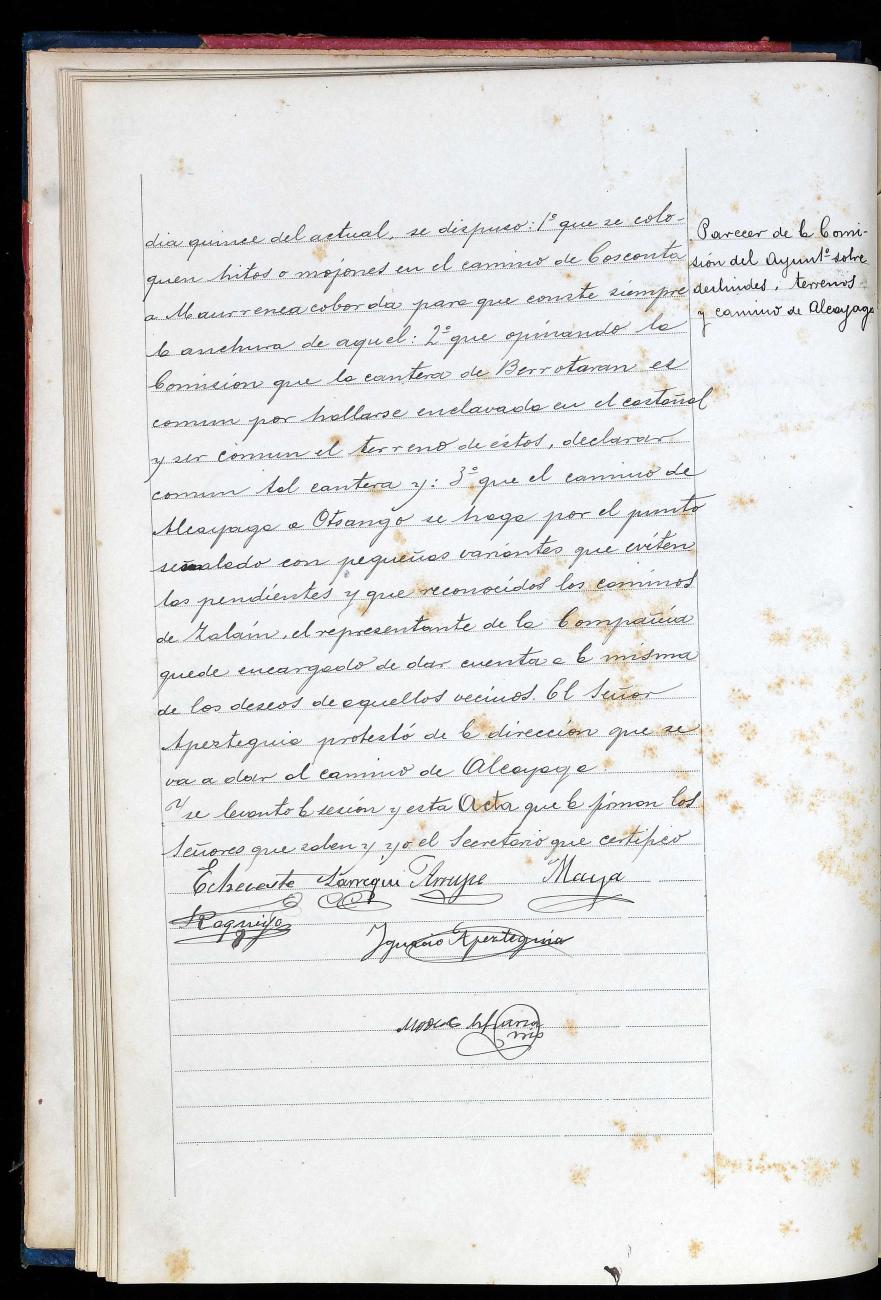 dia quince del actual, se dispuso: 1º que se colo-
quen hitos o mojones en el camino de Cosconta
a Maurrenea coborda para que conste siempre
la anchura de aquel: 2º que opinando la
Comisión que la cantera de Berrotaran es
comun por hallarse enclavada en el castañal
y ser comun el terreno de éstos, declarar
comun tal cantera y: 3º que el camino de
Alcayaga a Otsango se haga por el punto
señalado con pequeñas variantes que eviten
las pendientes y que reconocidos los caminos
de Zalain, el representante de la Compañia
quede encargado de dar cuenta a la misma
de los deseos de aquellos vecinos. El Señor
Apezteguia protestó de la dirección que se
va a dar al camino de Alcayaga.
Y se levanto la sesión y esta Acta que la firman los
Señores que saben y yo el Secretario que certifico
Echeveste Larregui Irrupe Maya
Ignacio Apezteguia
Parecer de la Comi-
sión del Ayuntº sobre
deslindes, terrenos
y camino de Alcayaga